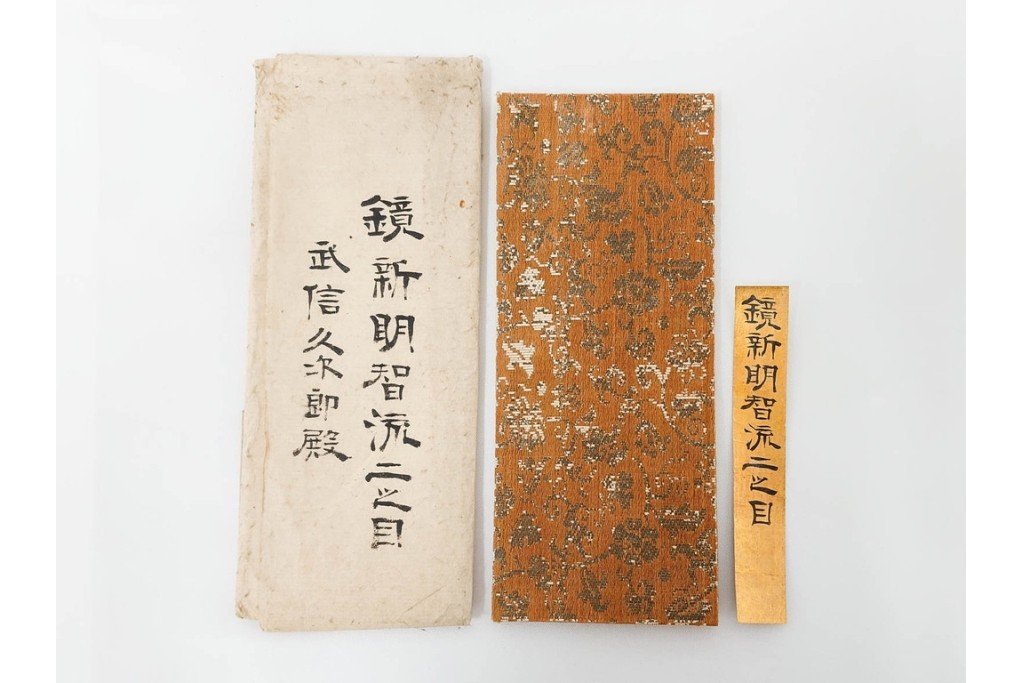 鏡新明智流二之目
武信久次郎殿
鏡新明智流二之目